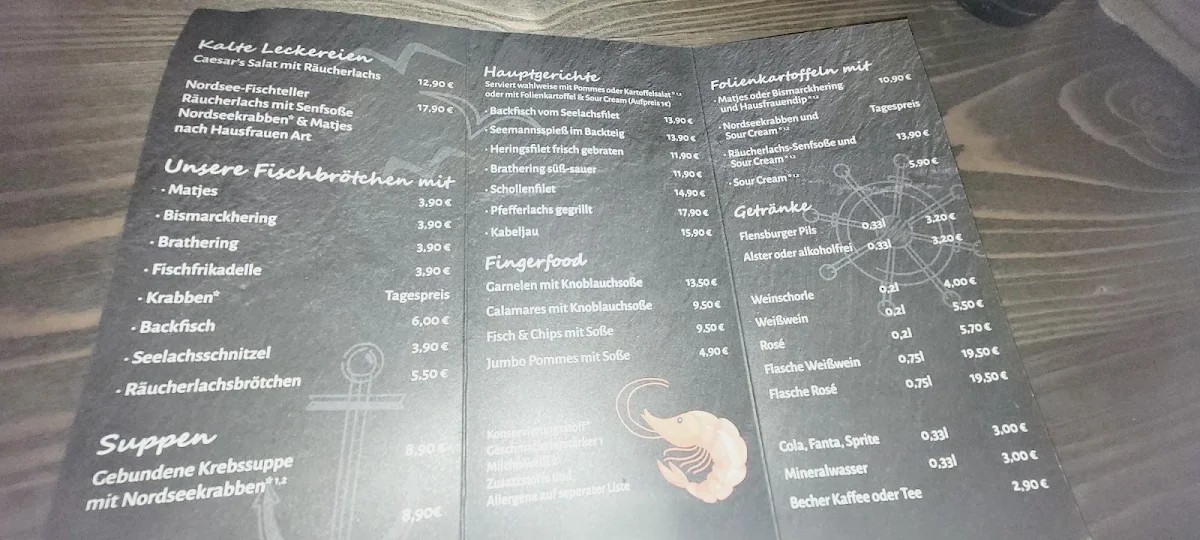 Kalte Leckereien
Caesar's Salat mit Räucherlachs 12,90 €
Nordsee-Fischteller 17,90 €
Räucherlachs mit Senfsoße
Nordseekrabben* & Matjes
nach Hausfrauen Art
Unsere Fischbrötchen mit
· Matjes 3,90 €
· Bismarckhering 3,90 €
· Brathering 3,90 €
· Fischfrikadelle 3,90 €
· Krabben* Tagespreis
· Backfisch 6,00 €
· Seelachsschnitzel 3,90 €
· Räucherlachsbrötchen 5,50 €
Suppen
Gebundene Krebssuppe 8,90 €
mit Nordseekrabben* 1,2
8,90€
Hauptgerichte
Serviert wahlweise mit Pommes oder Kartoffelsalat
oder mit Folienkartoffel & Sour Cream (Aufpreis 1€)
· Backfisch vom Seelachsfilet 13,90 €
· Seemannsspieß im Backteig 13,90 €
· Heringsfilet frisch gebraten 11,90 €
· Brathering süß-sauer 11,90 €
· Schollenfilet 14,90 €
· Pfefferlachs gegrillt 17,90 €
· Kabeljau 15,90 €
Fingerfood
Garnelen mit Knoblauchsoße 13,50 €
Calamares mit Knoblauchsoße 9,50 €
Fisch & Chips mit Soße 9,50 €
Jumbo Pommes mit Soße 4,90 €
Konservierungsstoff*
Geschmacksverstärker 1
Zusatzstoffe und
Allergene auf seperater Liste
Folienkartoffeln mit
· Matjes oder Bismarckhering 10,90 €
und Hausfrauendip * 1,2
· Nordseekrabben und Tagespreis
Sour Cream * 1,2
· Räucherlachs-Senfsoße und 13,90 €
Sour Cream * 1,2
· Sour Cream * 1,2 5,90 €
Getränke
Flensburger Pils 0,33l 3,20 €
Alster oder alkoholfrei 0,33l 3,20 €
Weinschorle 0,2l 4,00 €
Weißwein 0,2l 5,50 €
Rosé 0,2l 5,70 €
Flasche Weißwein 0,75l 19,50 €
Flasche Rosé 0,75l 19,50 €
Cola, Fanta, Sprite 0,33l 3,00 €
Mineralwasser 0,33l 3,00 €
Becher Kaffee oder Tee 2,90 €